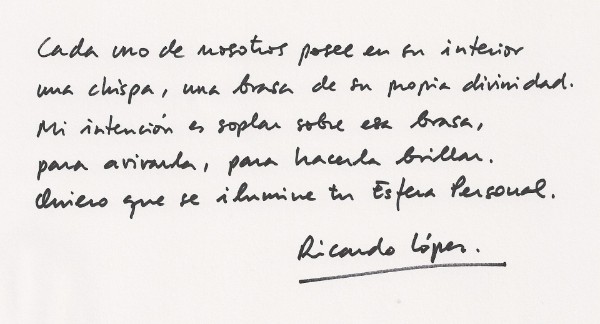 Cada uno de nosotros posee en su interior
una chispa, una brasa de su propia divinidad.
Mi intención es soplar sobre esa brasa,
para avivarla, para hacerla brillar.
Quiero que se ilumine tu Esfera Personal.
Ricardo López.